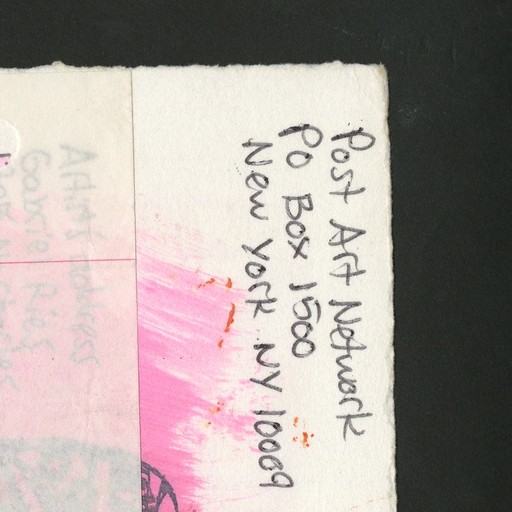 Post Art Network
PO Box 1500
New York NY 10009
Artist's address
Gabriel Rios